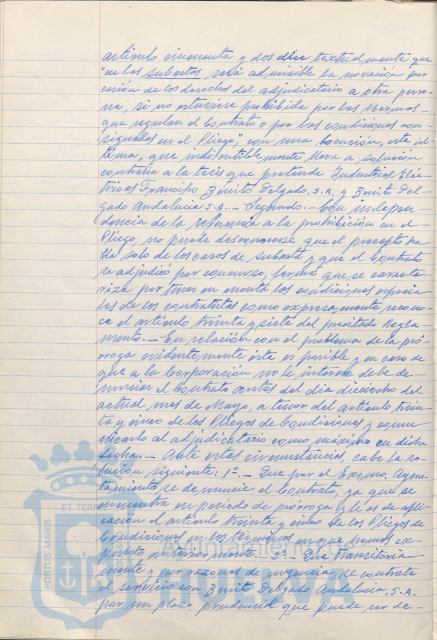 artículo cincuenta y dos dice textualmente que
"en las subastas será admisible la novación por
cesión de los derechos del adjudicatario a otra perso-
na, si no estuviere prohibida por las Normas
que regulan el Contrato o por las condiciones con-
signadas en el Pliego", con una locución, esta úl-
tima, que indiscutiblemente lleva a solución
contraria a la tesis que pretende Industrias Eléc-
tricas Francisco Benito Delgado, S.A. y Benito Del-
gado Andalucía S.A. — Segundo. — Con indepen-
dencia de la referencia a la prohibición en el
Pliego, no puede desconocerse que el precepto ha-
bla sólo de los casos de subasta y que el Contrato
se adjudicó por concurso, forma que se caracte-
riza por tener en cuenta las condiciones especia-
les de los contratistas como expresamente recono-
ce el artículo treinta y siete del precitado Regla-
mento. — En relación con el problema de la pró-
rroga evidentemente ésta es posible y en caso de
que a la Corporación no le interese debe de-
nunciar el Contrato antes del día dieciocho del
actual mes de Mayo, a tenor del artículo trein-
ta y cinco de los Pliegos de Condiciones y comu-
nicarlo al adjudicatario como máximo en dicha
fecha. — Ante estas circunstancias, cabe la so-
lución siguiente: 1º. — Que por el Excmo. Ayun-
tamiento se denuncie el Contrato, ya que se
encuentra en período de prórroga y le es de apli-
cación el artículo treinta y cinco de los Pliegos de
Condiciones en los términos en que hemos ex-
puesto anteriormente. — 2º. — Que transitoria-
mente y por razones de urgencia, se contrate
el servicio con Benito Delgado Andalucía, S.A.
por un plazo prudencial que puede ser de-
PORTUS MARIS
ET TERR